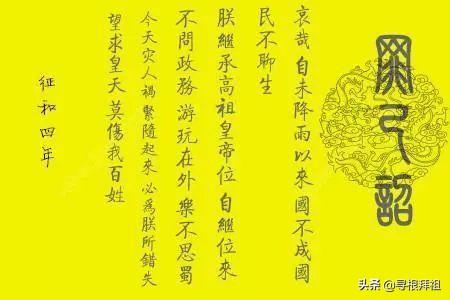 罪己詔
哀哉 自未降雨以來 國不成國
民不聊生
朕繼承高祖皇帝位 自繼位來
不問政務 游玩在外 樂不思蜀
今天灾人禍 緊隨起來 必爲朕所錯失
望求皇天 莫傷我百姓
征和四年
头条 @寻根拜祖